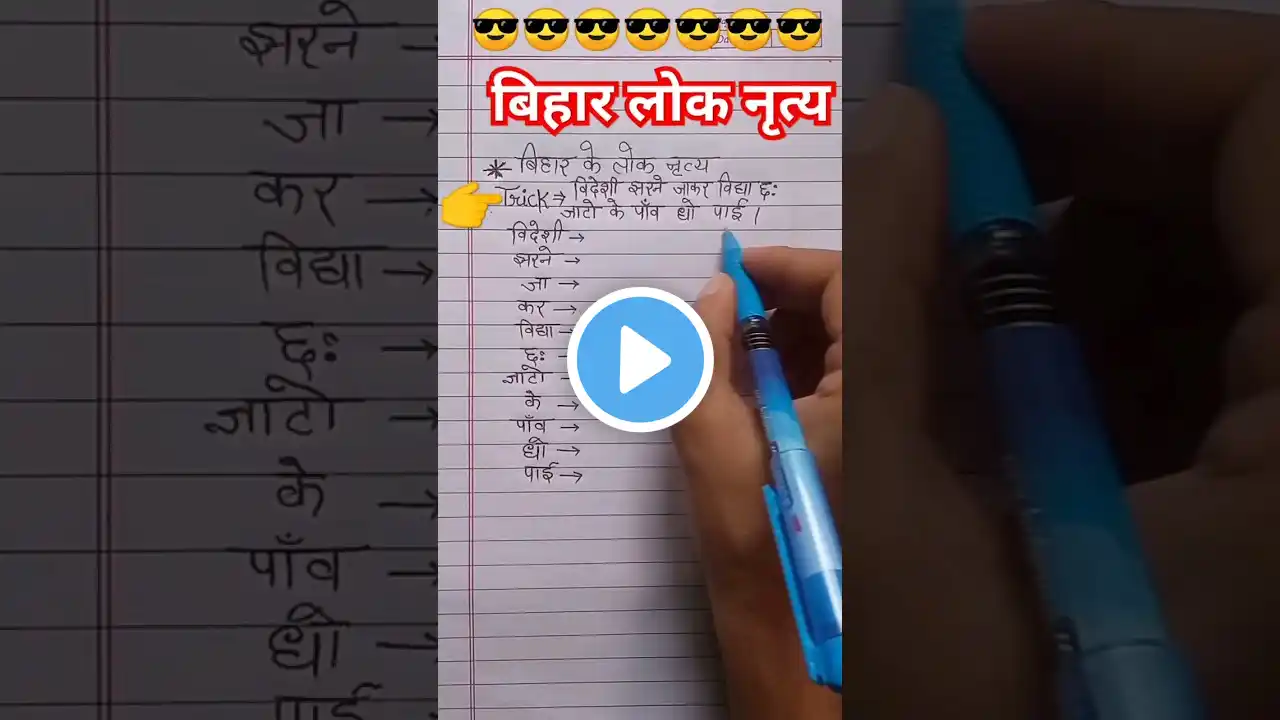 बिहार लोक नृत्य
* बिहार के लोक नृत्य
Trick → विदेशी झरने जाकर विद्या छः
जाटो के पाँव धो पाई ।
विदेशी →
झरने →
जा →
कर →
विद्या →
छः →
जाटो →
के →
पाँव →
धो →
पाई →